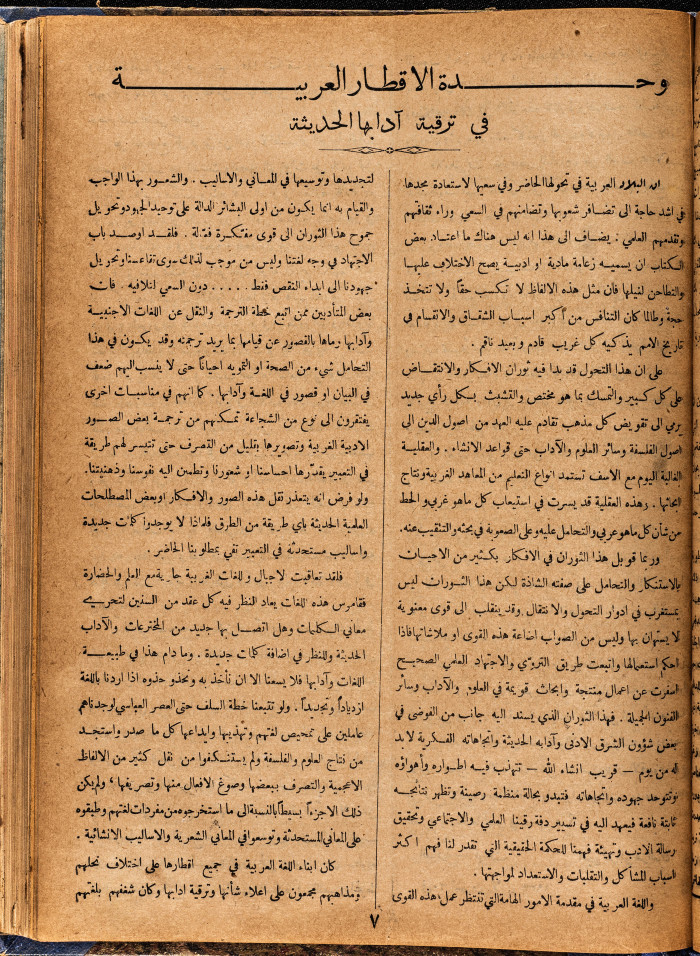 وحدة الاقطار العربية
في ترقية آدابها الحديثة
ان البلاد العربية في تحولها الحاضر وفي سعيها لاستعادة مجدها
في اشد حاجة الى تضافر شعوبها وتضامنهم في السعي وراء ثقافتهم
وتقدمهم العلمي : يضاف الى هذا انه ليس هناك ما اعتاد بعض
الكتاب ان يسميه زعامة مادية او ادبية يصح الاختلاف عليها
والتطاحن لنيلها فان مثل هذه الالفاظ لا تكسب حقاً ولا تتخذ
حجة وطالما كان التنافس من أكبر اسباب الشقاق والانقسام في
تاريخ الامم يذكيه كل غريب قادم وبعيد ناقم .
على ان هذا التحول قد بدا فيه ثوران الافكار والانتقاض
على كل كبير والتمسك بما هو مختص والتشبث بسكل رأي جديد
يرمي الى تقويض كل مذهب تقادم عليه العهد من اصول الدين الى
اصول الفلسفة وسائر العلوم والآداب حتى قواعد الانشاء . والعقلية
الغالبة اليوم مع الاسف تستمد انواع التعليم من المعاهد الغربية ونتاج
ابحاثها . وهذه العقلية قد يسرت في استيعاب كل ماهو غربي والحط
من شأن كل ماهو عربي والتحامل عليه وعلى الصعوبة في بحثه والتنقيب عنه.
وربما قوبل هذا الثوران في الافكار بكثير من الاحيات
بالاستنكار والتحامل على صفته الشاذة لكن هذا الثوران ليس
بمستغرب في ادوار التحول والانتقال وقد ينقلب الى قوى معنوية
لا يستهان بها وليس من الصواب اضاعة هذه القوى او ملاشاتها فاذا
احكم استعمالها واتبعت طريق التروي والاجتهاد العلمي الصحيح
اسفرت عن اعمال منتجة وابحاث قويمة في العلوم والآداب وسائر
الفنون الجميلة . فهذا الثوران الذي يسند اليه جانب من الفوضى في
بعض شؤون الشرق الادنى وآدابه الحديثة واتجاهاته الفكرية لا بد
له من يوم — قريب انشاء الله — تتهذب فيه اطواره وأهواؤه
وتتوحد جهوده واتجاهاته فتبدو بحالة منظمة رصينة وتظهر نتائجه
ثابتة نافعة فيعهد اليه في تسيير دفة رقينا العلمي والاجتماعي وتحقيق
رسالة الادب وتهيئة فهمنا للحكمة الحقيقية التي تقدر لنا فهم اكثر
اسباب المشاكل والتقلبات والاستعداد لمواجهتها .
واللغة العربية في مقدمة الامور الهامة التي تنتظر عمل هذه القوى
لتجديدها وتوسيعها في المعاني والاساليب . والشعور بهذا الواجب
والقيام به انما يكون من اولى البشائر الدالة على توحيد الجهود وتحويل
جموح هذا الثوران الى قوى مفتكرة فعالة . فلقد اوصد باب
الاجتهاد في وجه لغتنا وليس من موجب لذلك سوى تقاعسنا وتحويل
جهودنا الى ابداء النقص فقط . . . . . دون السعي لتلافيه . فان
بعض المتأدبين ممن اتبع خطة الترجمة والنقل عن اللغات الاجنبية
وآدابها رماها بالقصور عن قيامها بما يريد ترجمته وقد يكون في هذا
التحامل شيء من الصحة او التمويه احياناً حتى لا ينسب اليهم ضعف
في البيان او قصور في اللغة وآدابها . كما انهم في مناسبات اخرى
يفتقرون الى نوع من الشجاعة تمكنهم من ترجمة بعض الصور
الادبية الغربية وتصويرها بقليل من التصرف حتى تتيسر لهم طريقة
في التعبير يقدّرها احساسنا او شعورنا وتطمئن اليه نفوسنا وذهنيتنا.
ولو فرض انه يتعذر نقل هذه الصور والافكار او بعض المصطلحات
العلمية الحديثة باي طريقة من الطرق فلماذا لا يوجدوا كلمات جديدة
واساليب مستحدثة في التعبير تفي بمطلوبنا الحاضر .
فلقد تعاقبت لاجيال واللغات الغربية جارية مع العلم والحضارة
فقامرس هذه اللغات يعاد النظر فيه كل عقد من السنين لتحري
معاني السكلمات وهل اتصل بها جديد من المخترعات والآداب
الحديثة وللنظر في اضافة كلمات جديدة . وما دام هذا في طبيعة
اللغات وآدابها فلا يسعنا الا ان نأخذ به ونحذو حذوه اذا اردنا باللغة
ازدياداً وتجديداً . ولو تتبعنا خطة السلف حتى العصر العباسي لوجدناهم
عاملين على تمحيص لغتهم وتهذيبها وايداعها كل ما صدر واستجد
من نتاج العلوم والفلسفة ولم يستنكفوا من نقل كثير من الالفاظ
الاعجمية والتصرف ببعضها وصوغ الافعال منها وتصريفها ، ولم يكن
ذلك الاجزءاً بسيطاً بالنسبة الى ما استخرجوه من مفردات لغتهم وطبقوه
على المعاني المستحدثة وتوسعوا في المعاني الشعرية والاساليب الانشائية .
كان ابناء اللغة العربية في جميع اقطارها على اختلاف نحلهم
ومذاهبهم مجمعون على اعلاء شأنها وترقية ادابها وكان شغفهم بلغتهم
٧